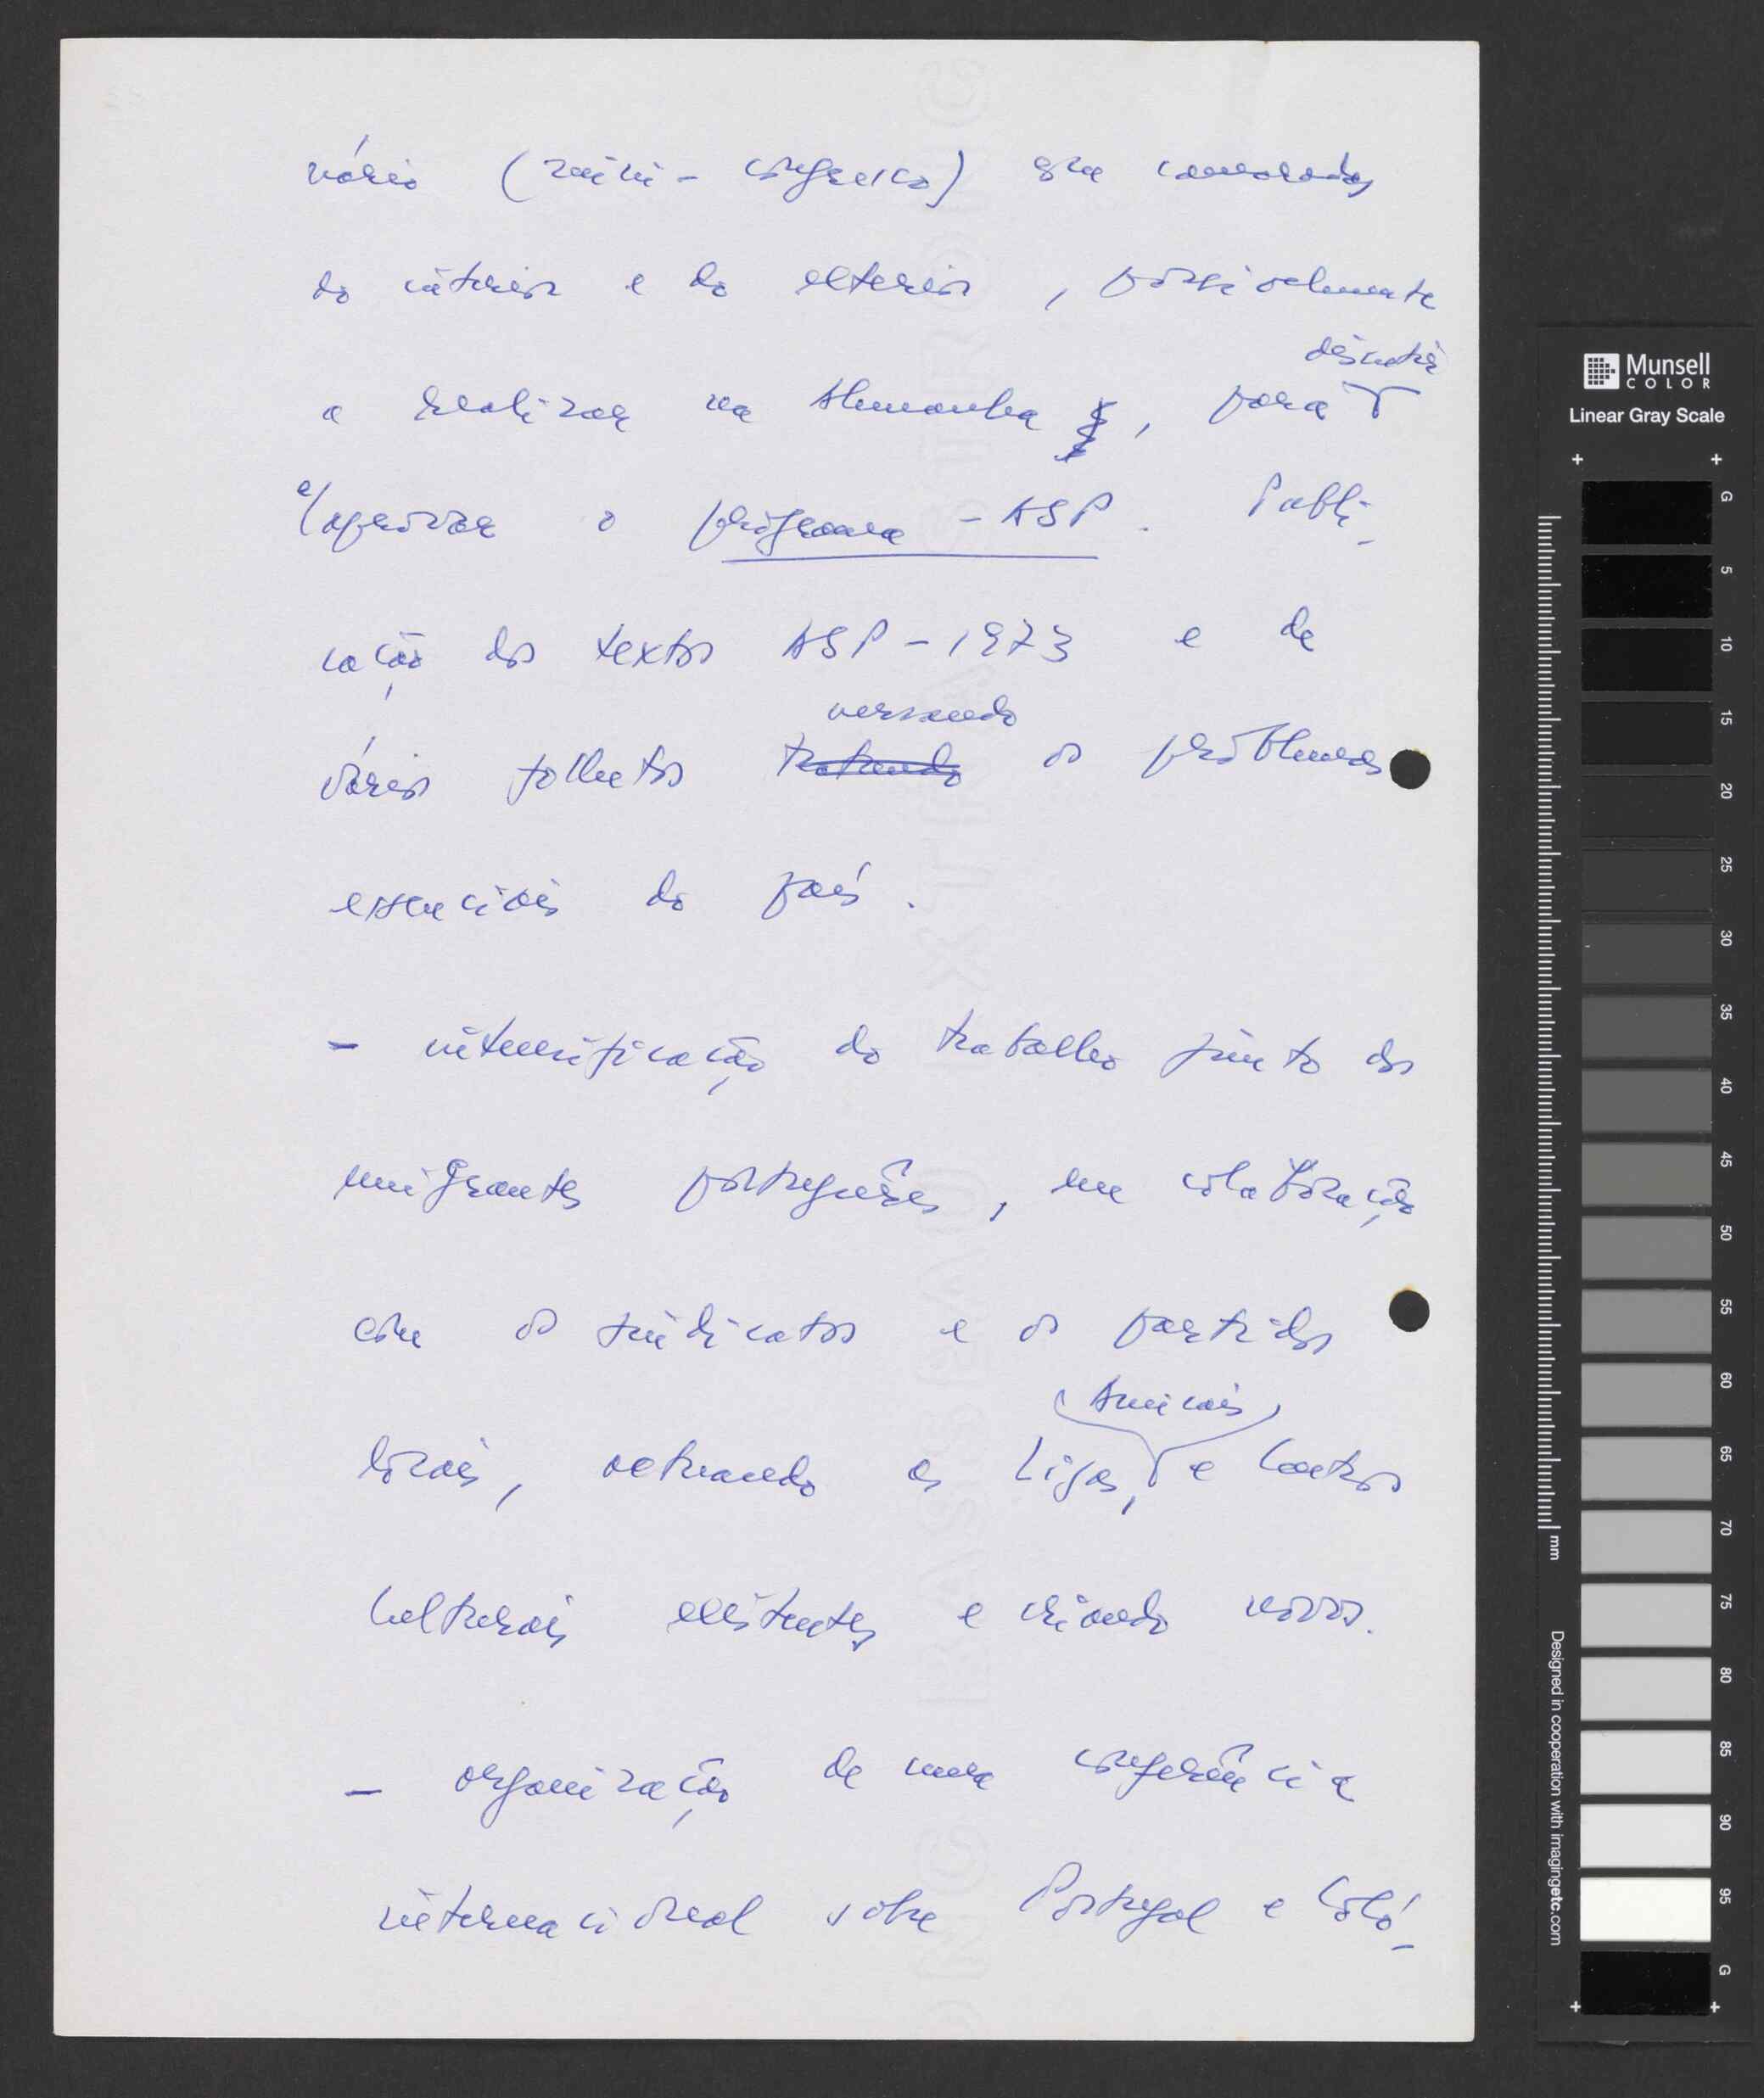 nário (mini-congresso) com camaradas
do interior e do exterior, possivelmente
a realizar na Alemanha, para discutir
e/aprovar o programa - ASP. Publi-
cação dos textos ASP - 1973 e de
vários folhetos tratando versando os problemas
essenciais do país.
- intensificação do trabalho junto dos
emigrantes portugueses, em colaboração
com os sindicatos e os partidos
locais, actuando as Ligas, (Amicais) e Centros
Culturais existentes e criando novos.
- organização de uma conferência
internacional sobre Portugal e Coló-
Munsell
COLOR
Linear Gray Scale
G
5
10
15
20
25
30
35
40
45
50
55
60
65
70
75
80
85
90
95
G
mm
Designed in cooperation with imagingetc.com